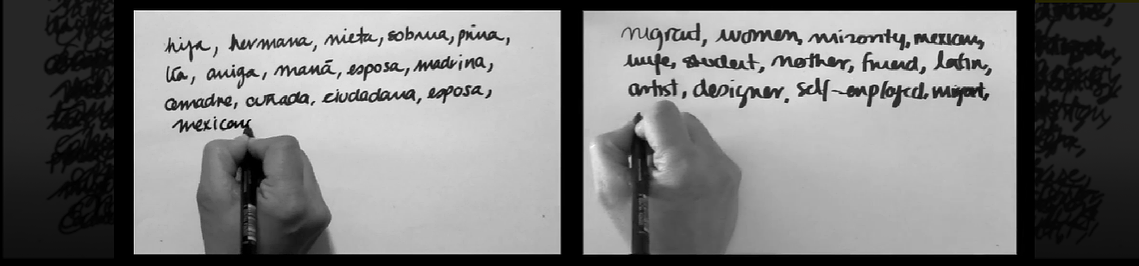 hija, hermana, nieta, sobrina, prima,
tía, amiga, mamá, esposa, madrina,
comadre, cuñada, ciudadana, esposa,
mexicana
migrant, women, minority, mexican,
wife, student, mother, friend, latin,
artist, designer, self-employed, migrant,